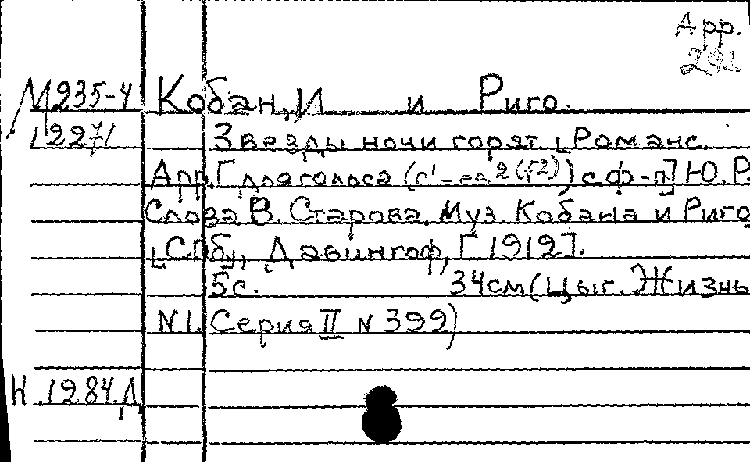 Арр.
М235-4 Кобан, И и Риго.
1227/ Звезды ночи горят [Романс.
Арр. [для голоса с ф-п] Ю. Р
Слова В. Старова. Муз. Кобана и Риго
[СПб], Давингоф, [1912].
5с. 34см (Цыг. Жизнь
N1. Серия II N 399)
Н.1284.Л